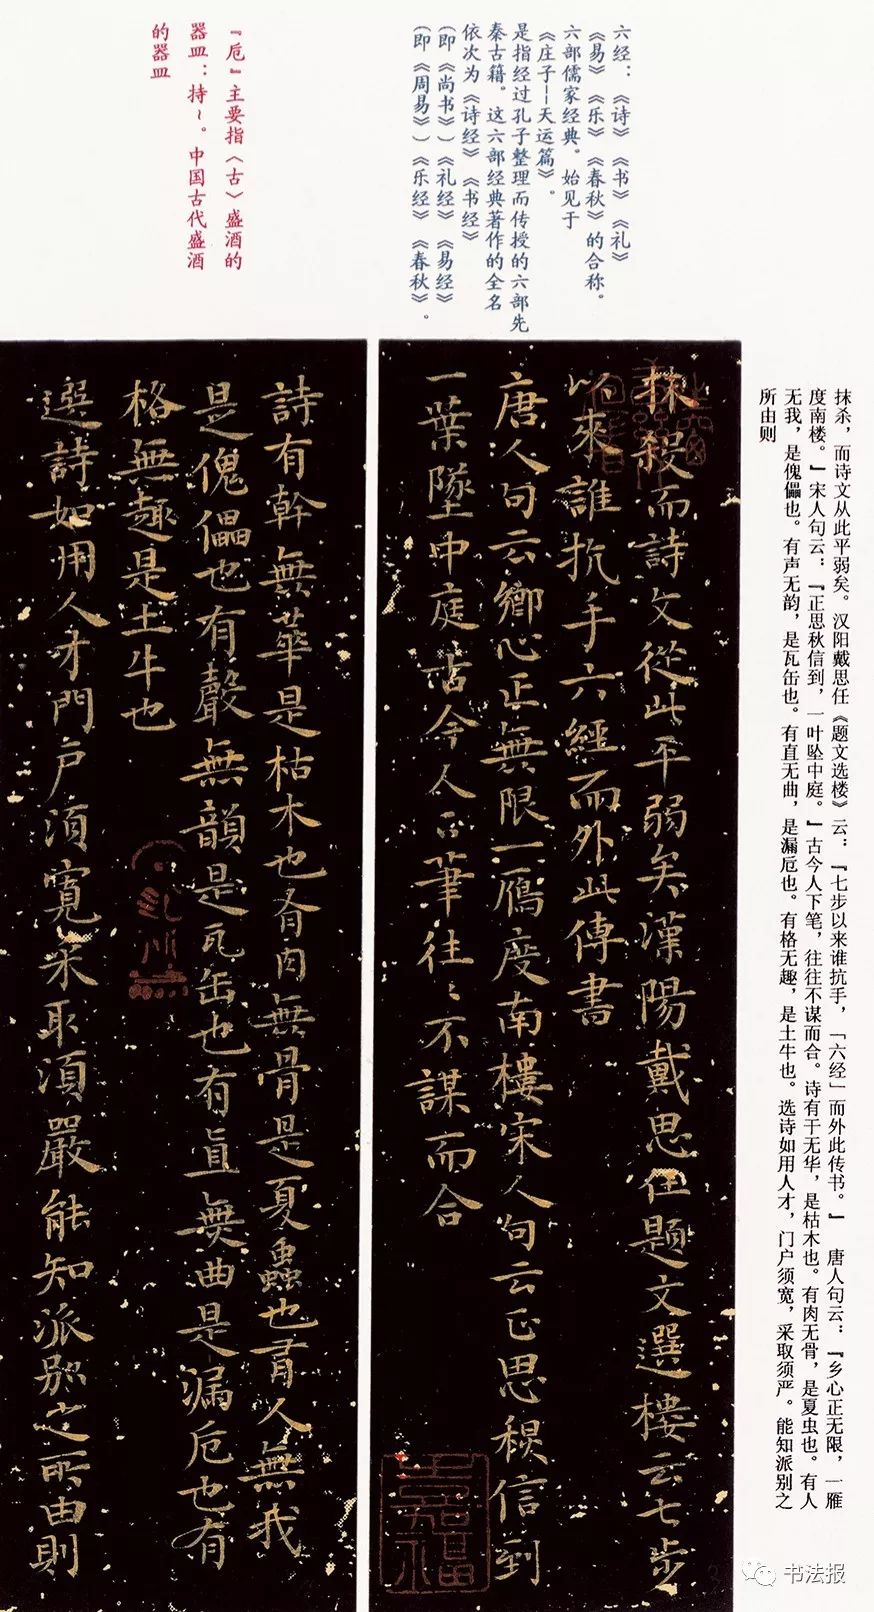 抹杀，而诗文从此平弱矣。汉阳戴思任《题文选楼》云：『七步以来谁抗手，「六经」而外此传书。』 唐人句云：『乡心正无限，一雁
度南楼。』宋人句云：『正思秋信到，一叶坠中庭。』古今人下笔，往往不谋而合。诗有干无华，是枯木也。有肉无骨，是夏虫也。有人
无我，是傀儡也。有声无韵，是瓦缶也。有直无曲，是漏卮也。有格无趣，是土牛也。选诗如用人才，门户须宽，采取须严。能知派别之
所由则
六经：《诗》《书》《礼》
《易》《乐》《春秋》的合称。
六部儒家经典。始见于
《庄子--天运篇》。
是指经过孔子整理而传授的六部先
秦古籍。这六部经典著作的全名
依次为《诗经》《书经》
(即《尚书》)《礼经》《易经》
(即《周易》)《乐经》《春秋》。
『卮』主要指〈古〉盛酒的
器皿：持~。中国古代盛酒
的器皿
抹殺而詩文從此平弱矣漢陽戴思任題文選樓云七步
以來誰抗手六經而外此傳書
唐人句云鄉心正無限一鴈度南樓宋人句云正思秋信到
一葉墜中庭古今人下筆往〻不謀而合
詩有幹無華是枯木也有肉無骨是夏蟲也有人無我
是傀儡也有聲無韻是瓦缶也有直無曲是漏卮也有
格無趣是土牛也
選詩如用人才門户須寬采取須嚴能知派别之所由則
书法报